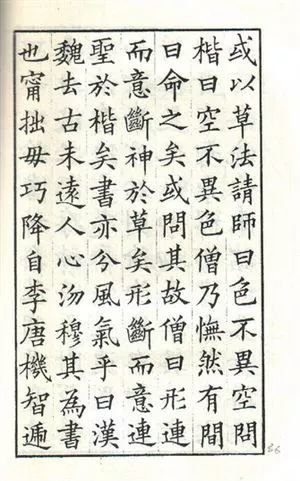 或以草法請師曰色不異空問
楷曰空不異色僧乃憮然有間
曰命之矣或問其故僧曰形連
而意斷神於草矣形斷而意連
聖於楷矣書亦兮風氣乎曰漢
魏去古未遠人心沕穆其為書
也甯拙毋巧降自李唐機智遞